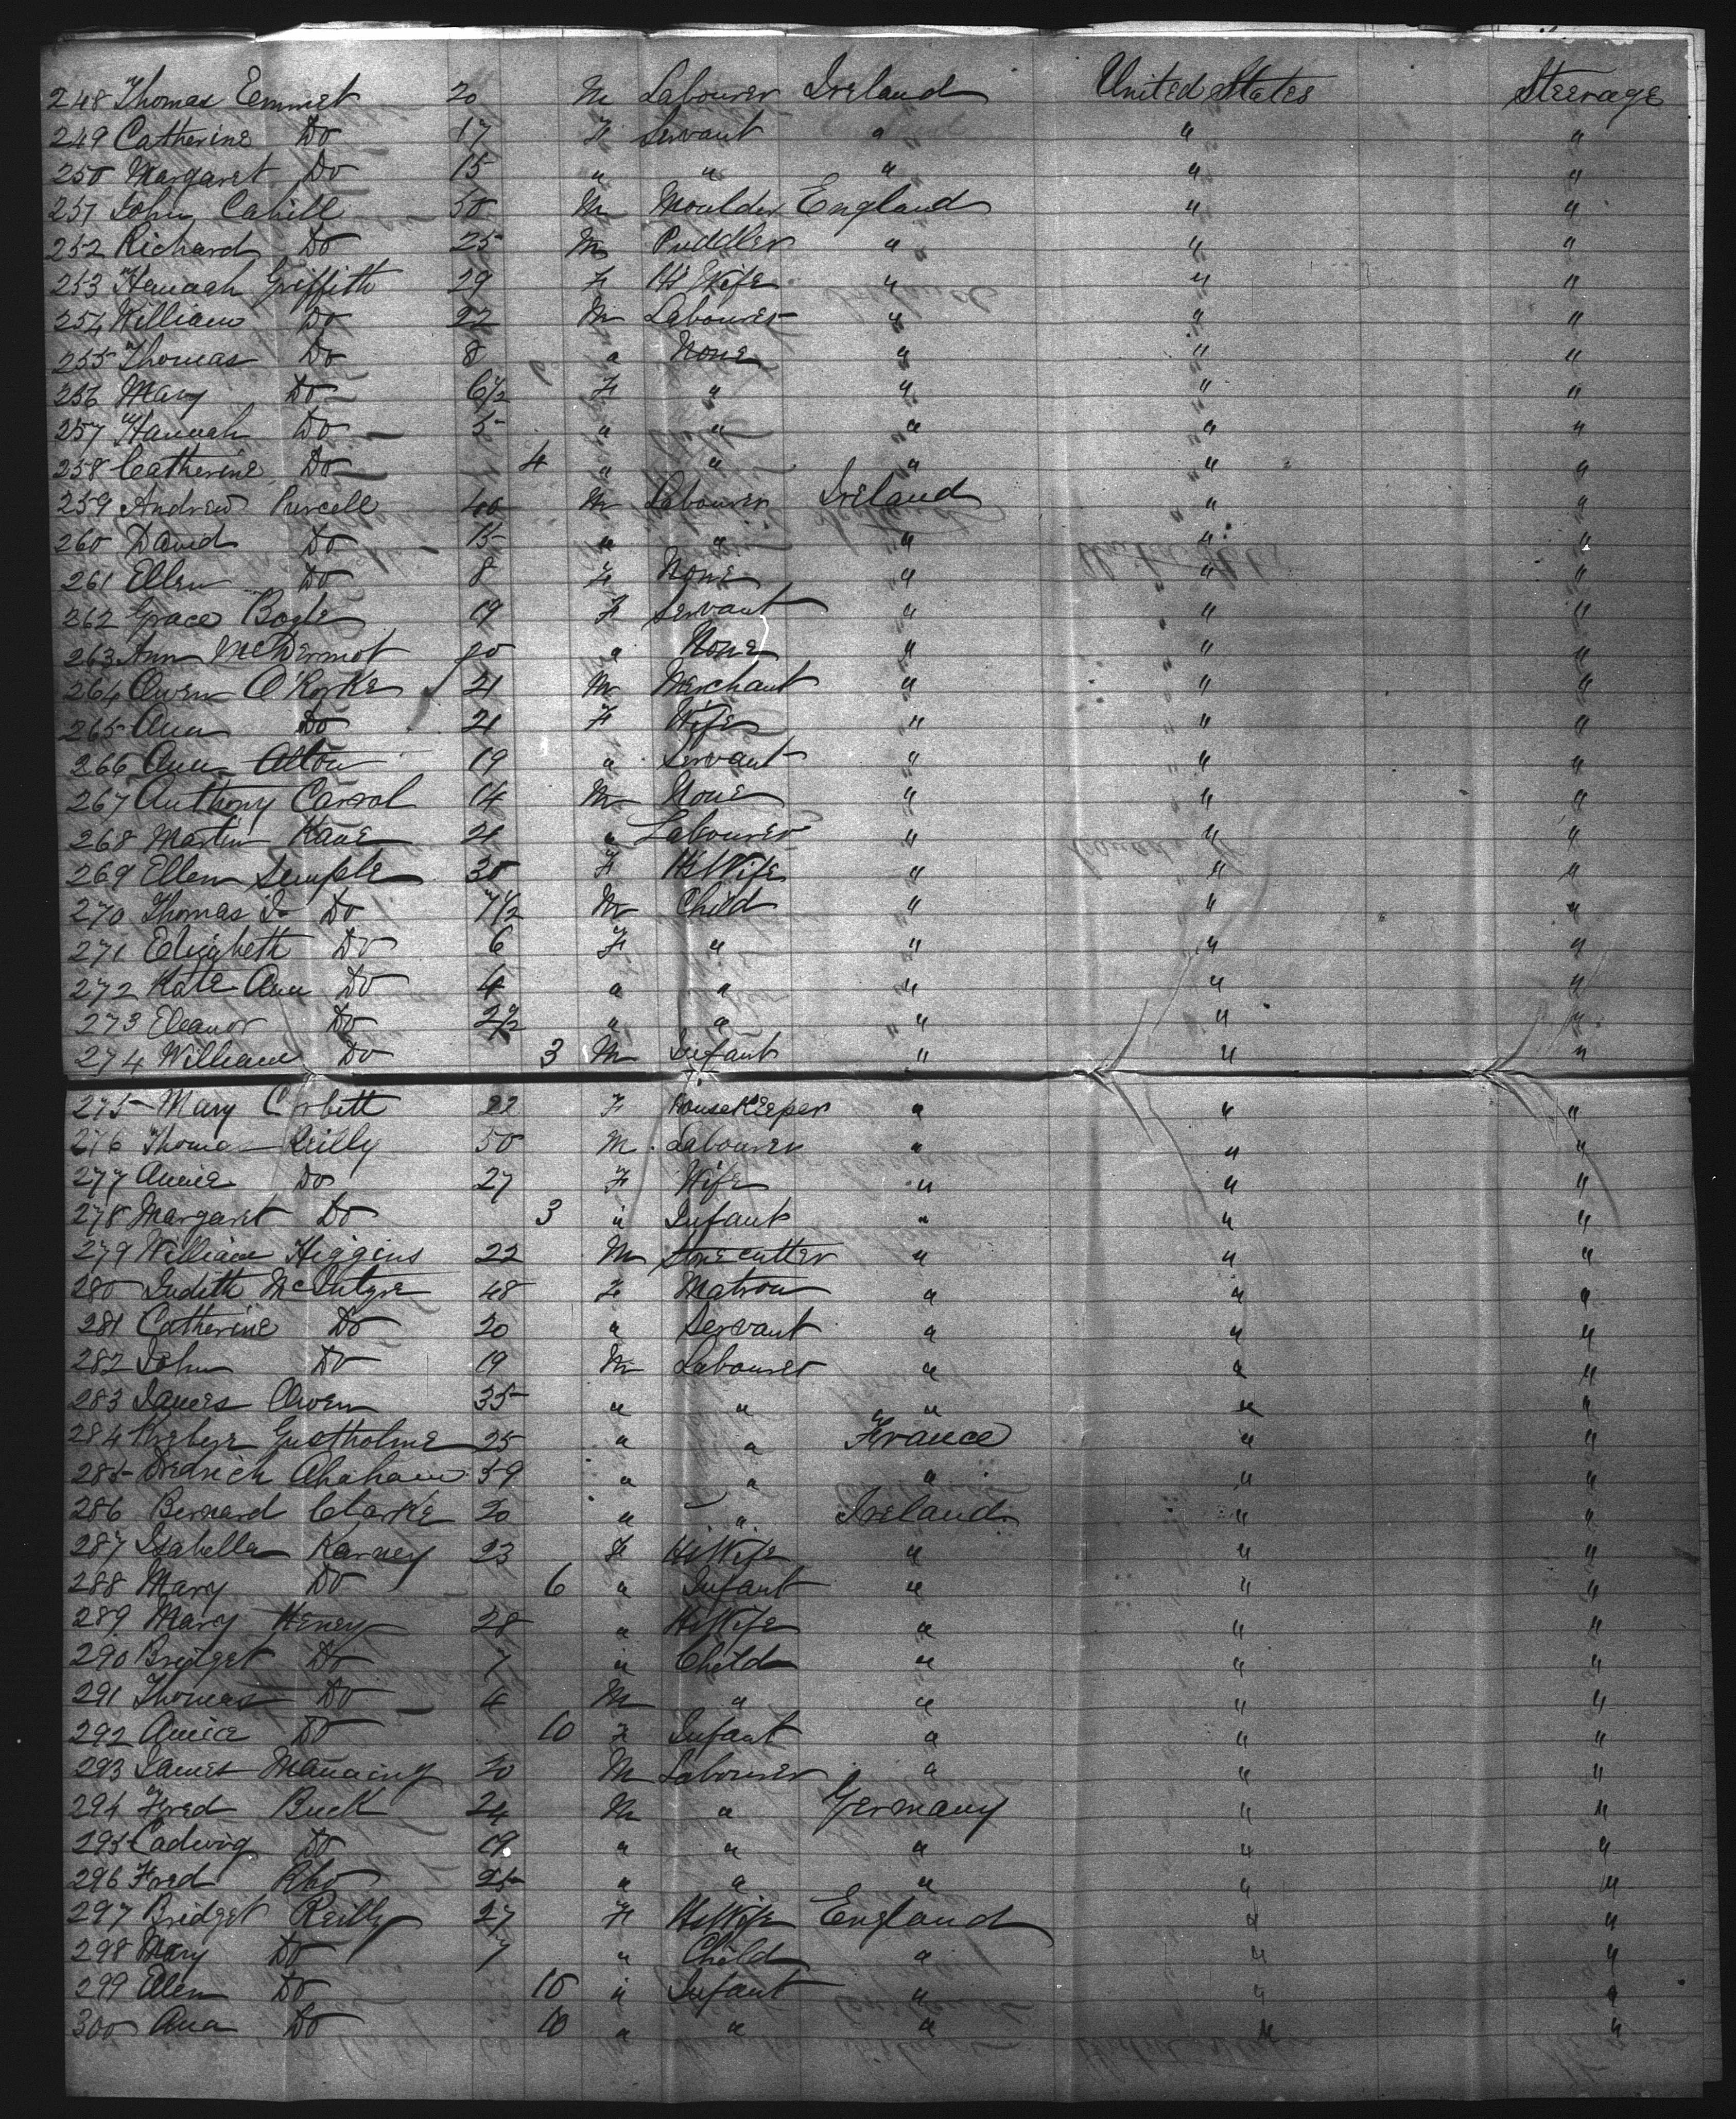 248 Thomas Emmet 20 M Labourer Ireland United States Steerage
249 Catherine Do 17 F Servant " " "
250 Margaret Do 15 " " " " "
251 John Cahill 50 M Moulder England " "
252 Richard Do 25 M Puddler " " "
253 Hannah Griffith 29 F Hs Wife " " "
254 William Do 22 M Labourer " " "
255 Thomas Do 8 " None " " "
256 Mary Do 6 1/2 F " " " "
257 Hannah Do 5 " " " " "
258 Catherine Do 4 " " " " "
259 Andrew Purcell 40 M Labourer Ireland " "
260 David Do 15 " " " " "
261 Ellen Do 8 F None " " "
262 Grace Bogle 19 F Servant " " "
263 Ann McDermot " None " " "
264 Owen O'Rorke 21 M Merchant " " "
265 Ann Do 21 F Wife " " "
266 Ann Alton 19 " Servant " " "
267 Anthony Carrol 14 M None " " "
268 Martin Kane 21 " Labourer " " "
269 Ellen Semple 30 F Hs Wife " " "
270 Thomas J. Do 7 1/2 M Child " " "
271 Elizabeth Do 6 F " " " "
272 Kate Ann Do 4 " " " " "
273 Eleanor Do 2 1/2 " " " " "
274 William Do 3 M Infant " " "
275 Mary Corbett 22 F Housekeeper " " "
276 Thomas Reilly 50 M Labourer " " "
277 Annie Do 27 F Wife " " "
278 Margaret Do 3 " Infant " " "
279 William Higgins 22 M Stone cutter " " "
280 Judith McIntyre 48 F Matron " " "
281 Catherine Do 20 " Servant " " "
282 John Do 19 M Labourer " " "
283 James Owen 35 " " " " "
284 Gustholme 25 " " France " "
285 Diedrich 59 " " " " "
286 Bernard Clarke 20 " " Ireland " "
287 Isabella Karney 23 F Hs Wife " " "
288 Mary Do 6 " Infant " " "
289 Mary Heney 28 " Hs Wife " " "
290 Bridget Do 7 " Child " " "
291 Thomas Do 4 M " " " "
292 Annie Do 10 F Infant " " "
293 James Manning 20 M Labourer " " "
294 Fred Buck 24 M " Germany " "
295 Ladwig Do 19 " " " " "
296 Fred 25 " " " " "
297 Bridget Reilly 27 F Hs Wife England " "
298 Mary Do 7 " Child " " "
299 Ellen Do 10 " Infant " " "
300 Ann Do 10 " " " " "